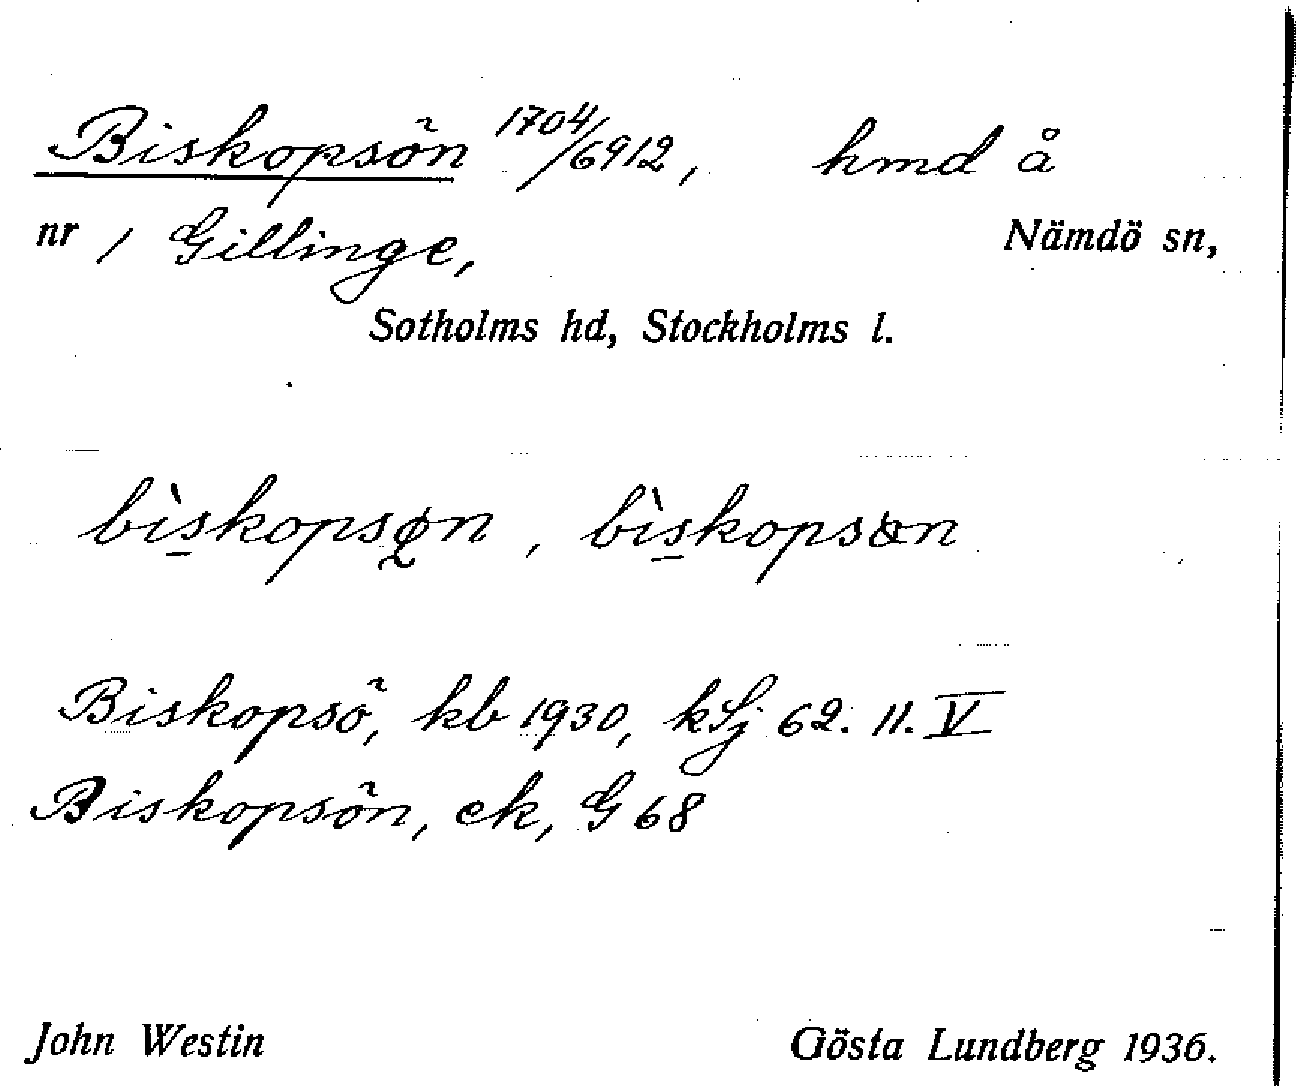 Biskopsön 1704/6912, hmd å
nr 1 Gillinge, Nämdö sn,
Sotholms hd, Stockholms l.
bìs̠kopsø̨n, bìs̠kopsɵn
Biskopsö, kb 1930, kSj 62. 11. V
Biskopsön, ek, G 68
John Westin Gösta Lundberg 1936.